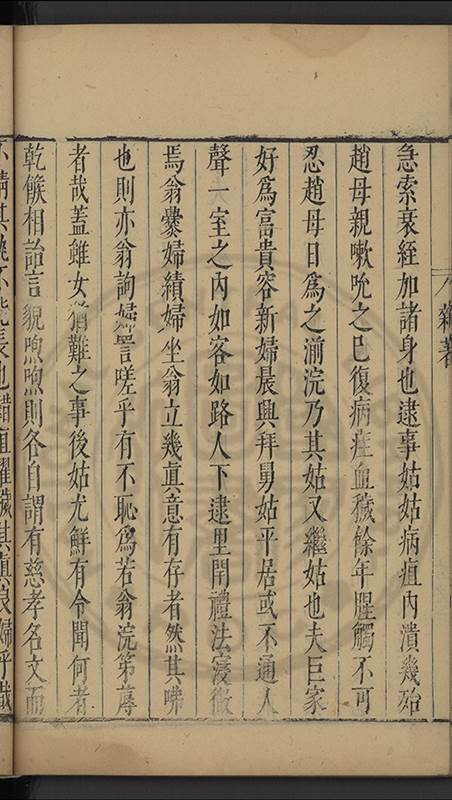 雜著
急索衰絰加諸身也逮事姑姑病疽內潰幾殆
趙母親嗽吮之已復病痊血穢餘年腥觸不可
忍趙母日為之湔浣乃其姑又繼姑也夫巨家
好為富貴容新婦晨興拜舅姑平居或不通人
聲一室之內如客如路人下逮里閈禮法寖微
焉翁爨婦績婦坐翁立幾眞意有存者然其咈
也則亦翁訽婦詈嗟乎有不恥為若翁浣笫蓐
者哉蓋雖女猶難之事後姑尤鮮有令聞何者
乾餱相詒言貌喣喣則各自謂有慈孝名文而